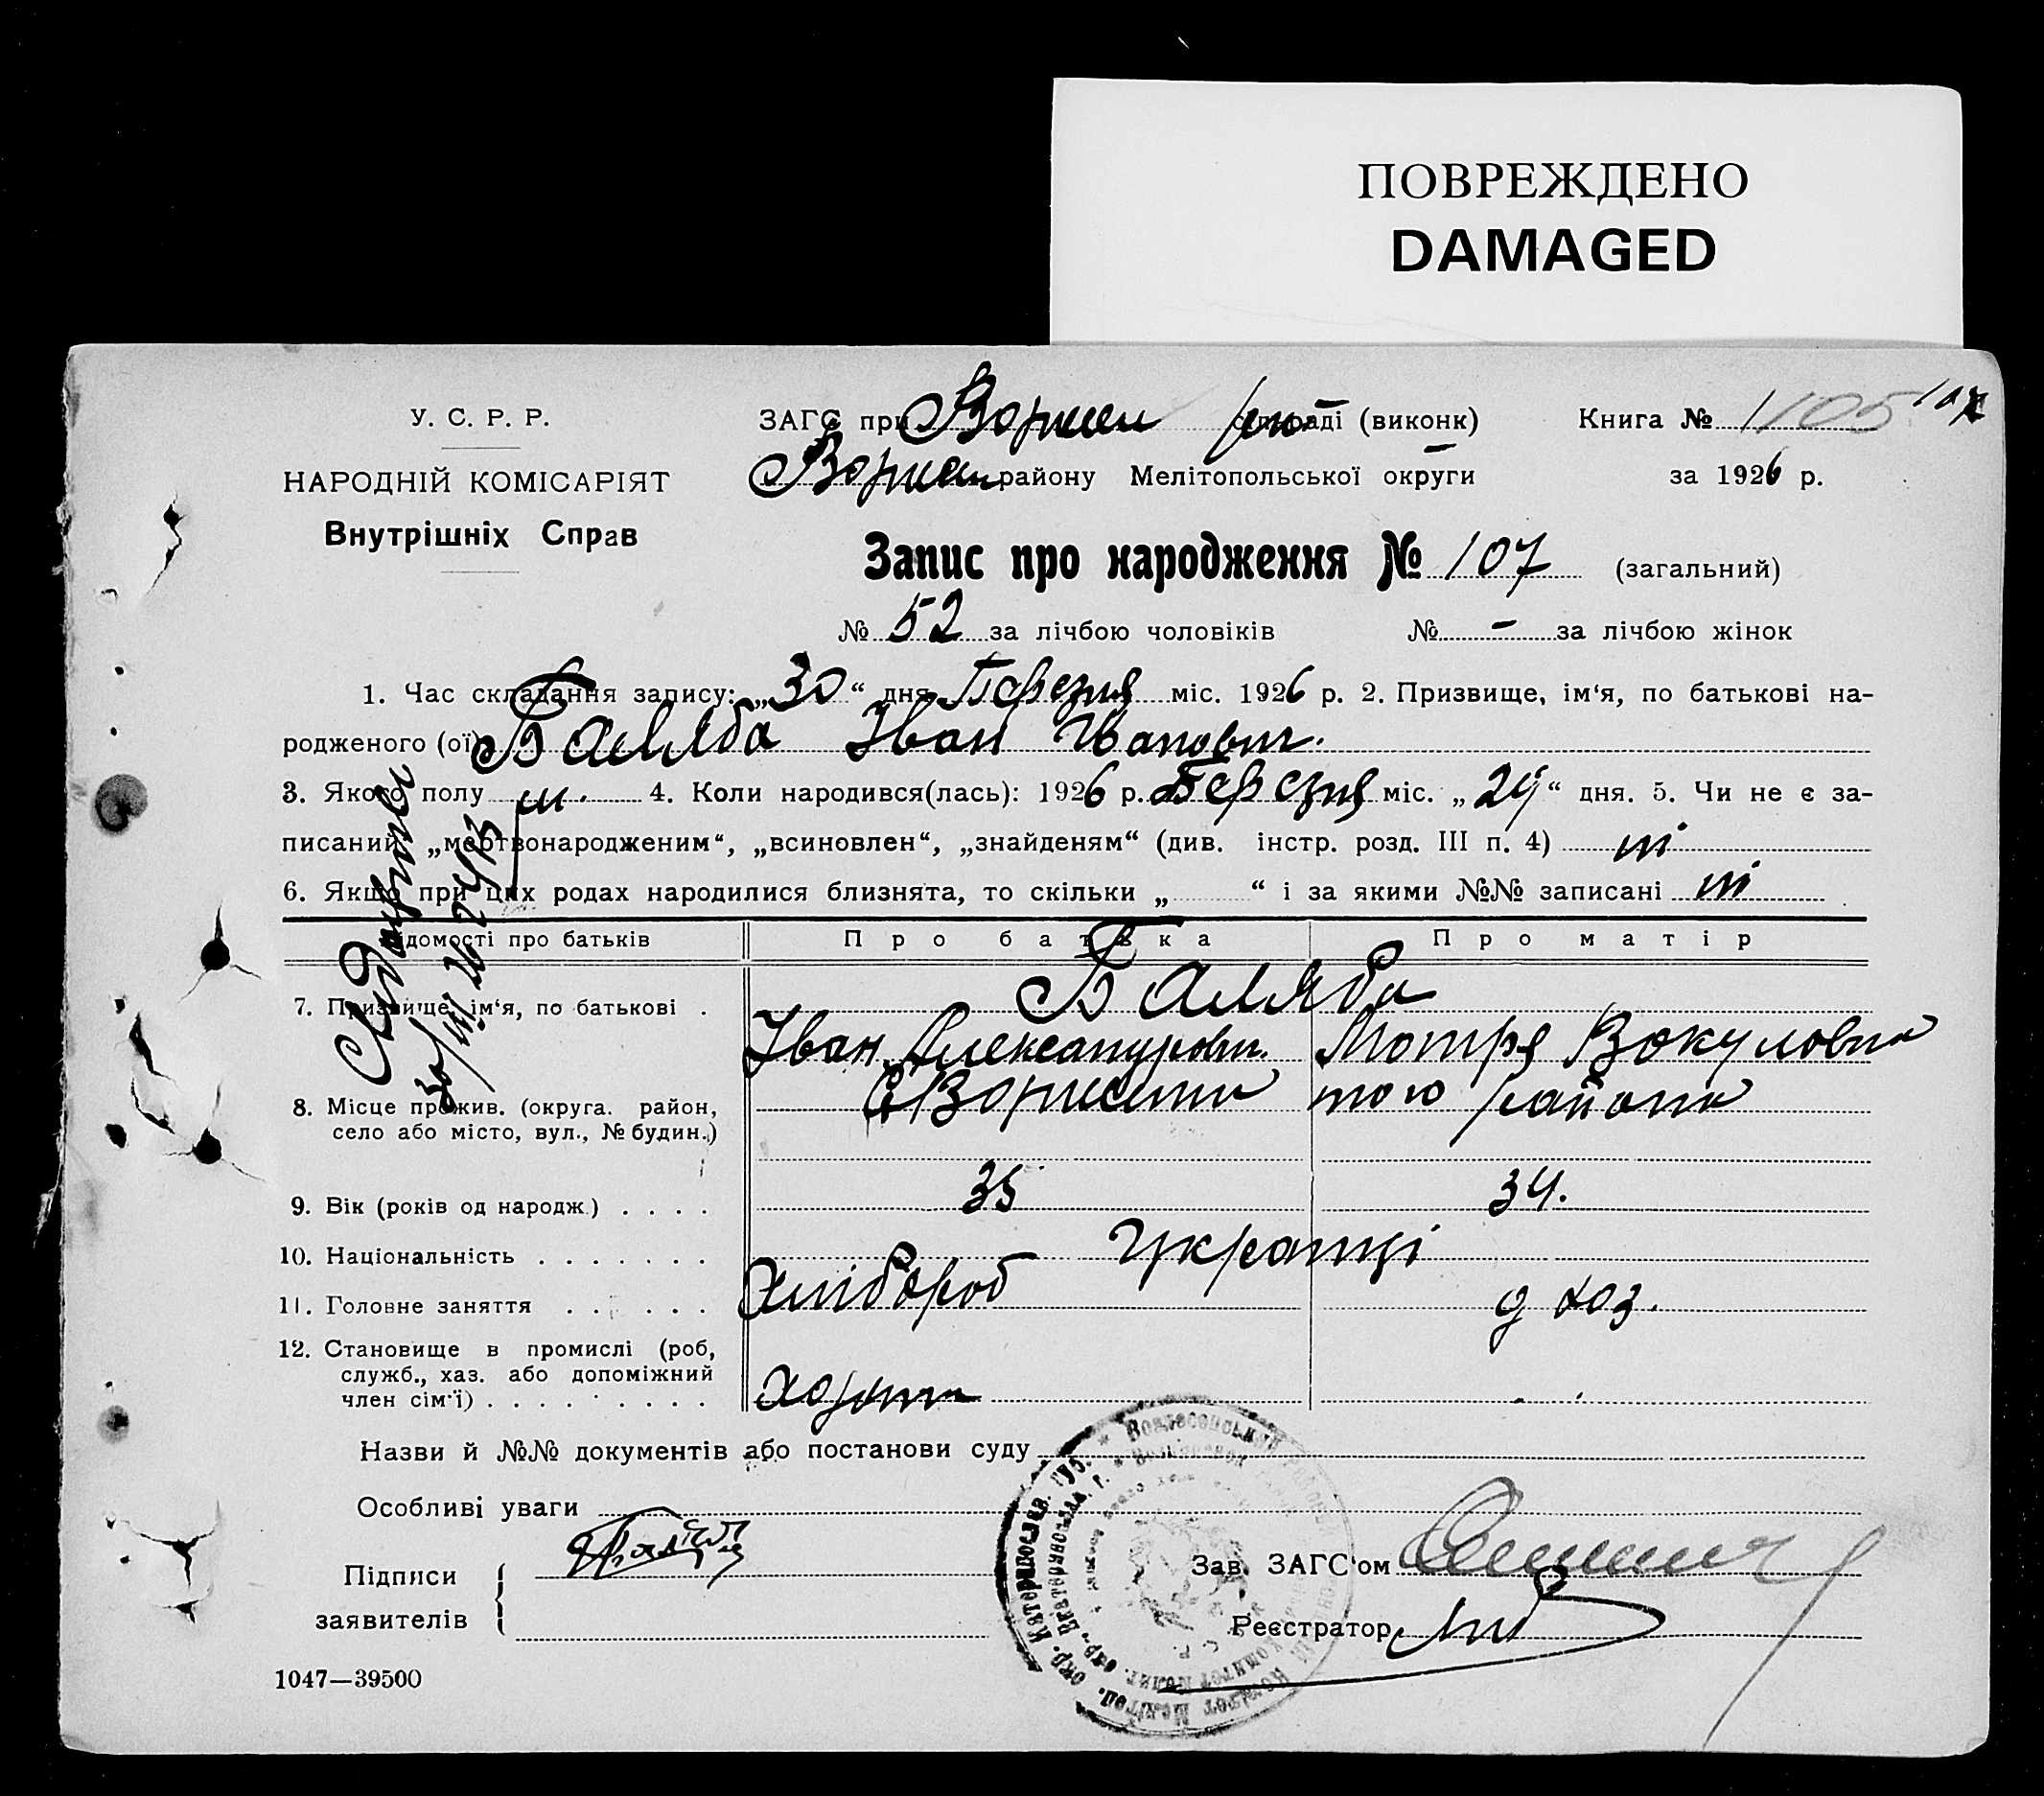 ПОВРЕЖДЕНО
DAMAGED
У. С. Р. Р.
НАРОДНІЙ КОМІСАРІЯТ
Внутрішніх Справ
ЗАГС при (виконк)
району Мелітопольської округи
Книга № 1105 107
за 1926 р.
Запис про народження № 107 (загальний)
№ 52 за лічбою чоловіків № - за лічбою жінок
1. Час складання запису: „30“ дня Березня міс. 1926 р. 2. Призвище, ім‘я, по батькові на-
родженого (ої) Баляба Іван Іванович.
3. Якого полу 4. Коли народився(лась): 1926 р. Березня міс. „29“ дня. 5. Чи не є за-
писаний „мертвонародженим“, „всиновлен“, „знайденям“ (див. інстр. розд. III п. 4) ні
6. Якщо при цих родах народилися близнята, то скільки „ “ і за якими №№ записані ні
Відомості про батьків Про батька Про матір
7. Призвище, ім‘я, по батькові . Баляба
Іван Александрович. Мотря Вокуловна
8. Місце прожив. (округа. район,
село або місто, вул., № будин.)
того района
9. Вік (років од народж.) . . . . 35 34.
10. Національність . . . . . . . Українці
11. Головне заняття . . . . . . Хлібороб д хоз.
12. Становище в промислі (роб,
служб., хаз. або допоміжний
член сім‘ї) . . . . . . . . .
Назви й №№ документів або постанови суду
Особливі уваги
Підписи
заявителів
Зав. ЗАГС‘ом
Реєстратор
1047—39500